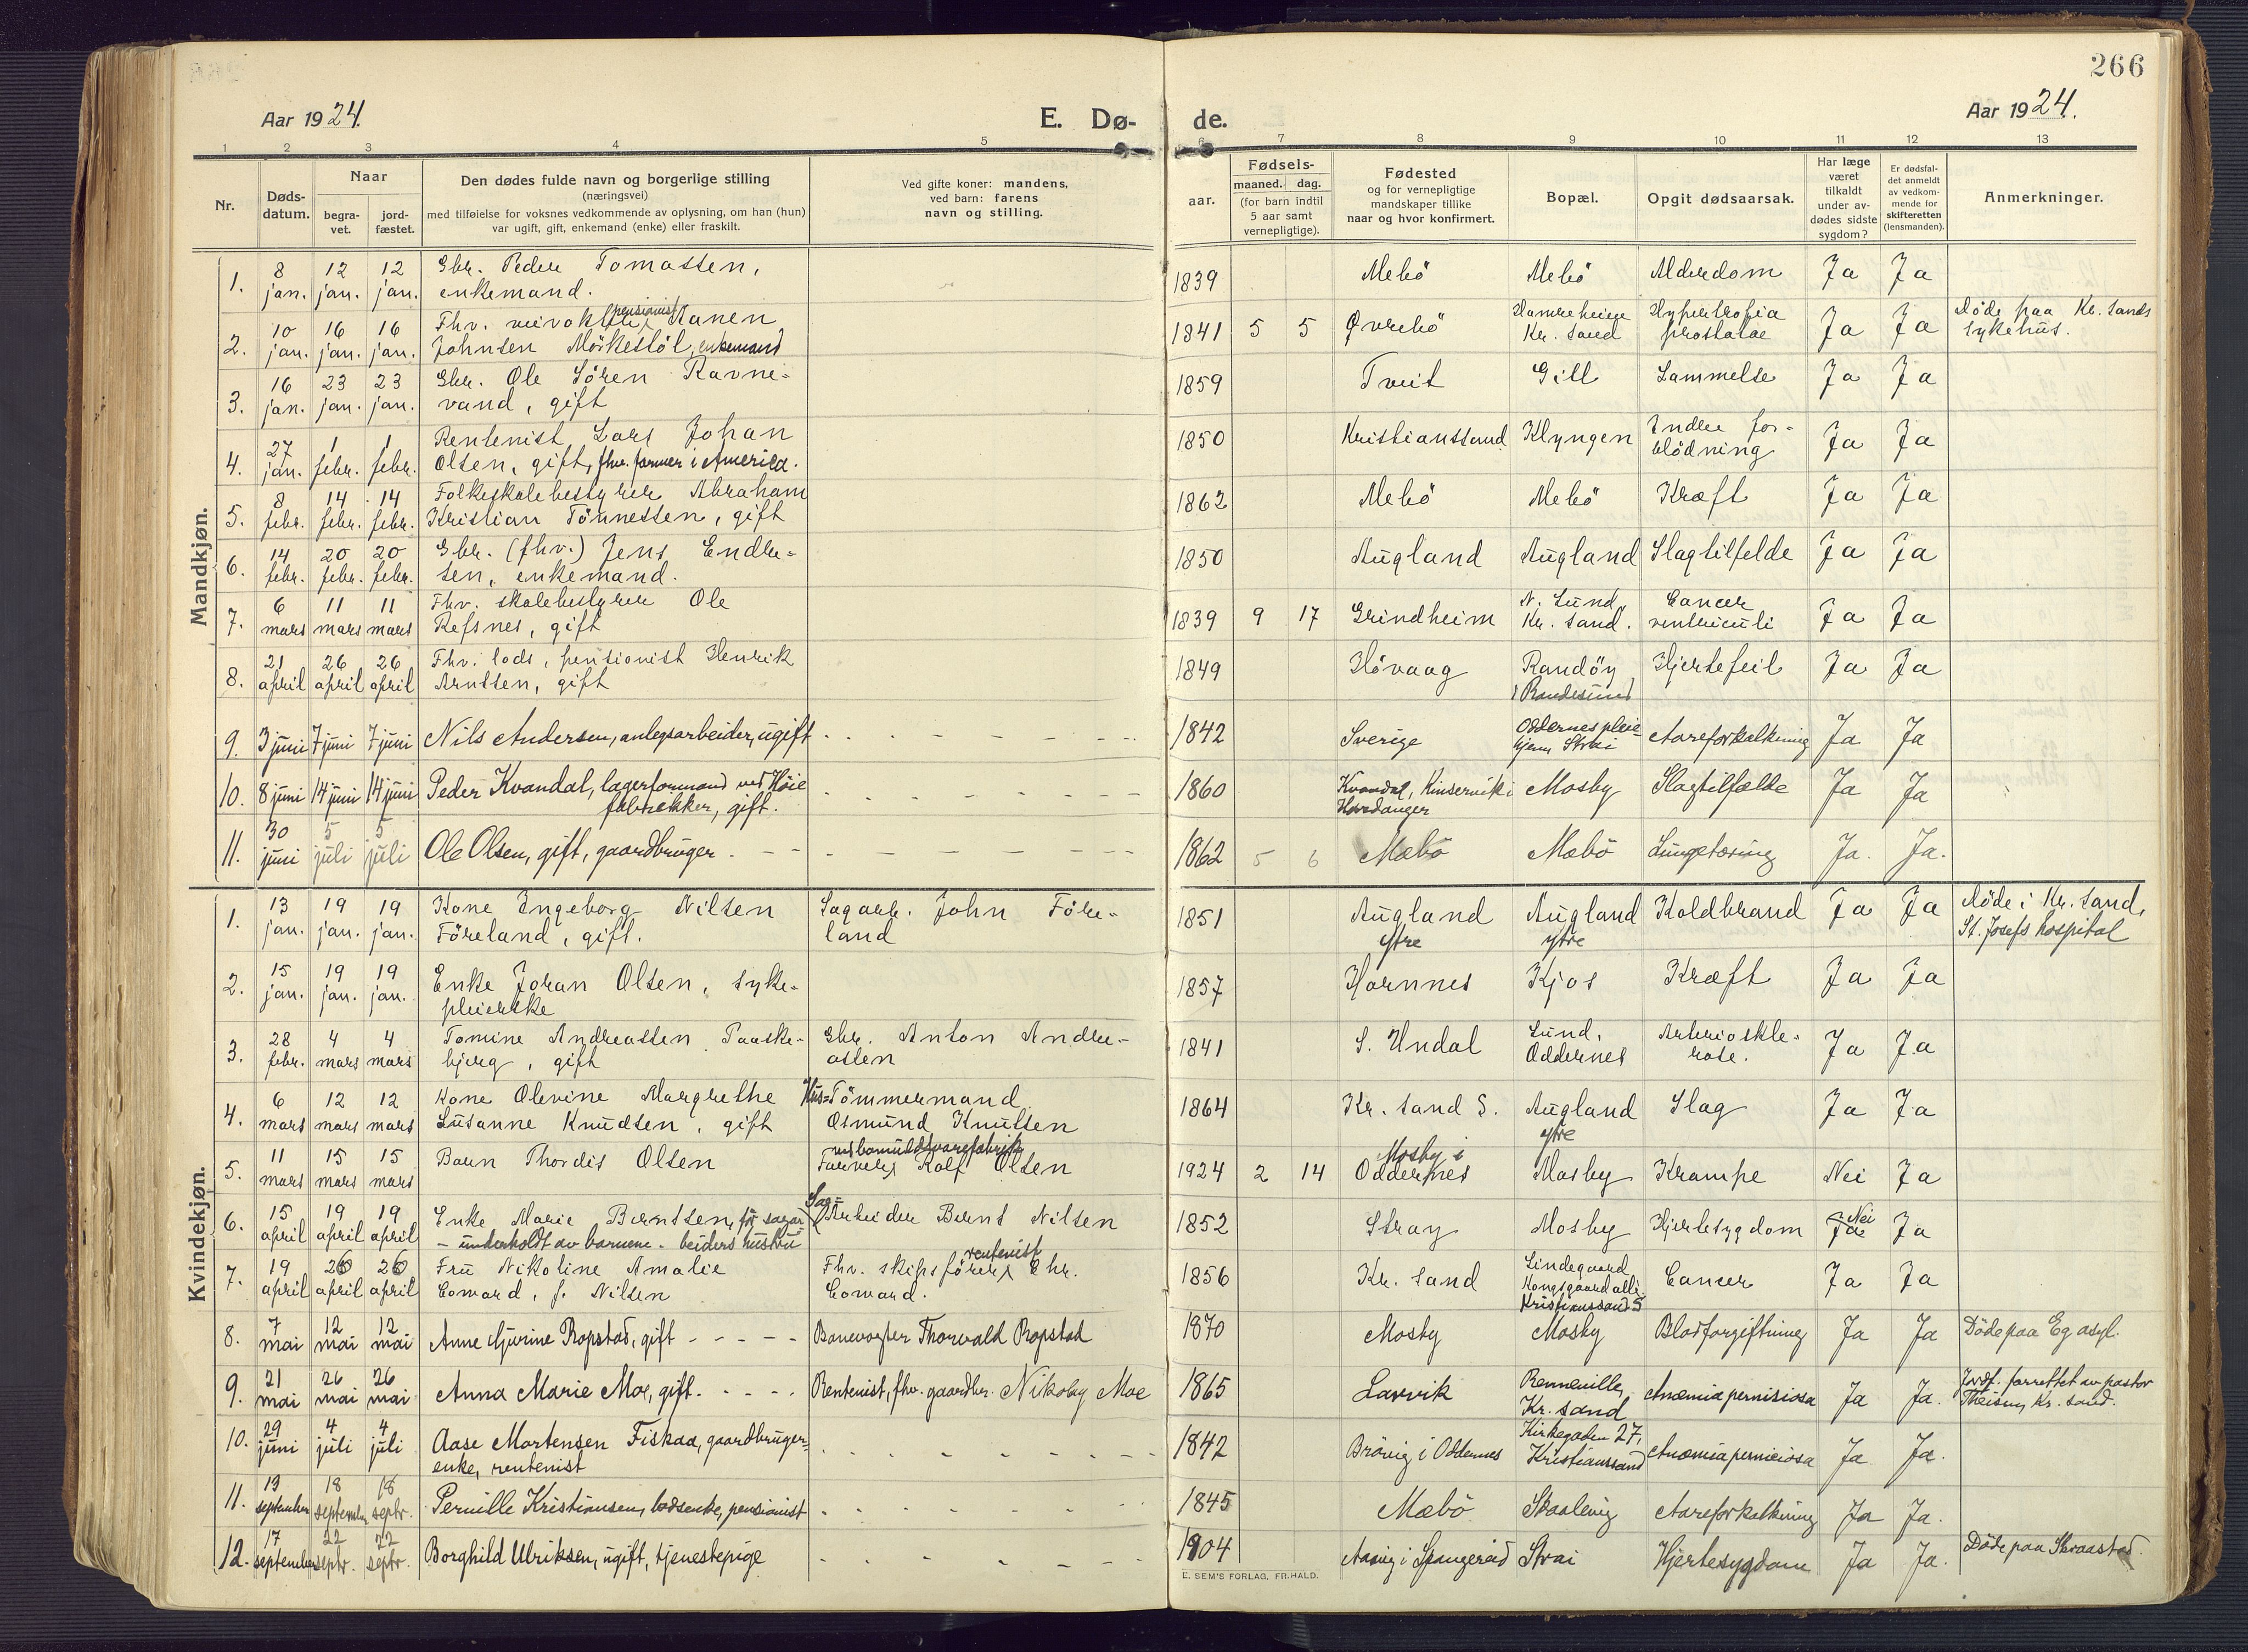 266
Aar 1924.
E. Dø-
de.
Aar 1924.
1 2 3 4 5 6 7 8 9 10 11 12 13
Nr.
Døds-
datum.
Naar
begra-
vet.
jord-
fæstet.
Den dødes fulde navn og borgerlige stilling
(næringsvei)
med tilføielse for voksnes vedkommende av oplysning, om han (hun)
var ugift, gift, enkemand (enke) eller fraskilt.
Ved gifte koner: mandens,
ved barn: farens
navn og stilling.
aar.
Fødsels-
maaned. dag.
(for barn indtil
5 aar samt
vernepligtige).
Fødested
og for vernepligtige
mandskaper tillike
naar og hvor konfirmert.
Bopæl.
Opgit dødsaarsak.
Har læge
været
tilkaldt
under av-
dødes sidste
sygdom?
Er dødsfal-
det anmeldt
av vedkom-
mende for
skifteretten
(lensmanden).
Anmerkninger.
Mandkjøn.
1. 8 jan. 12 jan. 12 jan. Gbr. Peder Tomassen, enkemand. 1839 Mebö Mebö Alderdom Ja Ja
2. 10 jan. 16 jan. 16 jan. Fhv. pensionist Kanen Johnsen Mörkestöl, enkemand 1841 5 5 Øvrebö Hamreheien Kr. sand Hypertrofia prostatae Ja Ja Døde paa Kr. sands sykehus.
3. 16 jan. 23 jan. 23 jan. Gbr. Ole Sören Ravne-
vand, gift 1859 Tveit Gill Lammelse Ja Ja
4. 27 jan. 1 febr. 1 febr. Rentenist Lars Johan Olsen, gift, fhv. farmer i America. 1850 Kristianssand Klyngen Indre for-
blödning Ja Ja
5. 8 febr. 14 febr. 14 febr. Folkeskolebestyrer Abraham Kristian Tönnessen, gift 1862 Mebö Mebö Kræft Ja Ja
6. 14 febr. 20 febr. 20 febr. Gbr. (fhv.) Jens Endre-
sen, enkemand. 1850 Augland Augland Slagtilfelde Ja Ja
7. 6 mars 11 mars 11 mars Fhv. skolebestyrer Ole Refsnes, gift 1839 9 17 Grindheim N. Lund, Kr. sand. Cancer ventriculi Ja Ja
8. 21 april 26 april 26 april Fhv. lods, pensionist Henrik Arntsen, gift 1849 Hövaag Randöy i Randesund Hjertefeil Ja Ja
9. 3 juni 7 juni 7 juni Nils Andersen, anlegsarbeider, ugift 1842 Sverige Oddernes pleie-
hjem Strai Aareforkalkning Ja Ja
10. 8 juni 14 juni 14 juni Peder Kvandal, lagerformand ved Höie fabrikker, gift. 1860 Kvandal, Kinservik i Hardanger Mosby Slagtilfælde Ja Ja
11. 30 juni 5 juli 5 juli Ole Olsen, gift, gaardbruger 1862 5 6 Mæbö Mæbö Lungetæring Ja. Ja.
Kvindekjøn.
1. 13 jan. 19 jan. 19 jan. Kone Engeborg Nilsen Föreland, gift. Sagarb. John Före-
land 1851 Augland ytre Augland ytre Koldbrand Ja Ja Døde i Kr. sand, St. Josefs hospital
2. 15 jan. 19 jan. 19 jan. Enke Joran Olsen, syke-
pleierske 1857 Hornnes Kjos Kræft Ja Ja
3. 28 febr. 4 mars 4 mars Tomine Andreassen Paaske-
bjerg, gift Gbr. Anton Andre-
assen 1841 S. Undal Lund, Oddernes Arterioskle-
rose. Ja Ja
4. 6 mars 12 mars 12 mars Kone Olevine Margrethe Susanne Knudsen, gift Hus-Tömmermand Osmund Knutsen 1864 Kr. sand S. Augland ytre Slag Ja Ja
5. 11 mars 15 mars 15 mars Barn Thordis Olsen Farver ved bomuldsvarefabrik Rolf Olsen 1924 2 14 Mosby i Oddernes Mosby Krampe Nei Ja
6. 15 april 19 april 19 april Enke Marie Berntsen, før sagar-
beiders hustru - underholdt av barnene. Sag-Arbeider Bernt Nilsen 1852 Stray Mosby Hjertesygdom Ja Nei Ja
7. 19 april 26 april 26 april Fru Nikoline Amalie Coward, f. Nilsen Fhv. skipsförer, rentenist Chr. Coward. 1856 Kr. sand Lindegaard Kongsgaard alle Kristianssand S Cancer Ja Ja
8. 7 mai 12 mai 12 mai Anne Gjurine Ropstad, gift Banevogter Thorvald Ropstad 1870 Mosby Mosby Blodforgiftning Ja Ja Döde paa Eg asyl.
9. 21 mai 26 mai 26 mai Anna Marie Moe, gift. Rentenist, fhv. gaardbr. Nikolay Moe 1865 Larvik Kr. sand Anæmia pernisiosa Ja Ja. Jordf. forrettet av pastor Theisen, Kr. sand.
10. 29 juni 4 juli 4 juli Aase Mortensen Fiskaa, gaardbruger-
enke, rentenist 1842 Brövig i Oddernes Kirkegaden 27, Kristianssand Anæmia perniciosa Ja Ja.
11. 13 september 18 september 18 septr. Pernille Kristiansen, lodsenke, pensionist 1845 Mæbö Skaalevig Aareforkalkning Ja Ja.
12. 17 september 22 septr. 22 septr. Borghild Ulriksen, ugift, tjenestepige 1904 i Spangereid Strai Hjertesygdom Ja Ja. Døde paa Skraastad.
E. SEM'S FORLAG, FR.HALD.